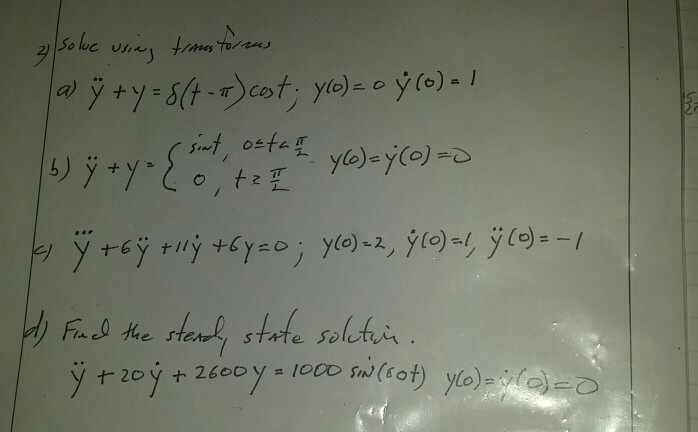 2) Solve using transforms
a) ÿ + y = δ(t - π) cost; y(0) = 0 ẏ(0) = 1
b) ÿ + y = { sint, 0 ≤ t < π/2
0, t ≥ π/2 y(0) = ẏ(0) = 0
c) y⃛ + 6ÿ + 11ẏ + 6y = 0; y(0) = 2, ẏ(0) = 1, ÿ(0) = -1
d) Find the steady state solution.
ÿ + 20ẏ + 2600y = 1000 sin(60t) y(0) = ẏ(0) = 0